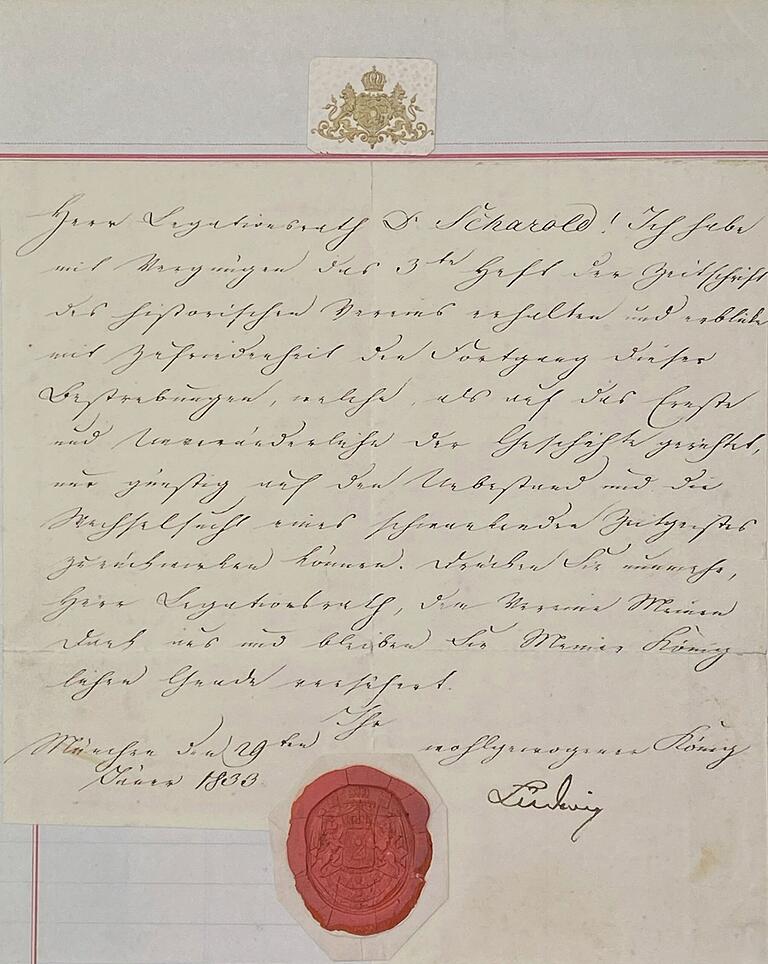 Herr Legationsrath Dr Scharold! Ich habe
mit Vergnügen das 3te Heft der Zeitschrift
des historischen Vereins erhalten und erblicke
mit Zufriedenheit den Fortgang dieser
Bestrebungen, welche, als auf das Ernste
und Unveränderliche der Geschichte gerichtet,
nur günstig auf den Unbestand und die
Wechselsucht eines schwankenden Zeitgeistes
zurückwirken können. Drücken Sie nunmehr,
Herr Legationsrath, dem Vereine Meinen
Dank aus und bleiben Sie Meiner König-
lichen Gnade versichert.
Ihr
München den 29ten wohlgewogener König
Jäner 1833
Ludwig